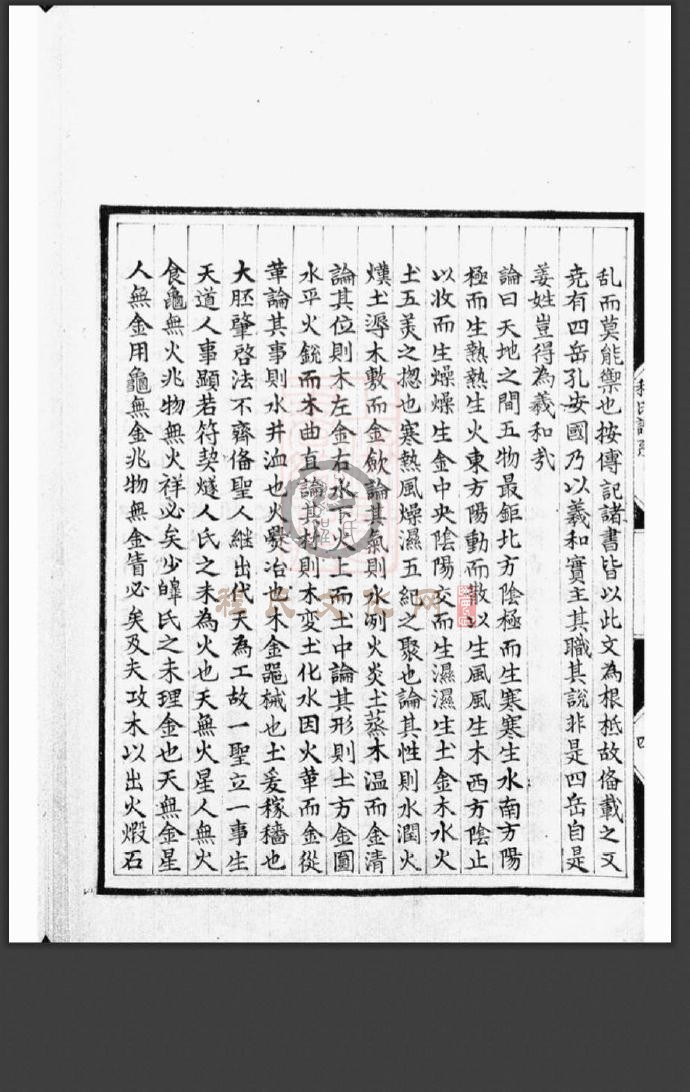 乱而莫能禦也按傳記諸書皆以此文為根柢故俻載之文
尭有四岳孔安國乃以羲和實主其職其說非是四岳自是
姜姓豈得為羲和㢤
論曰天地之間五物最鉅北方陰極而生寒寒生水南方陽
極而生熱熱生火東方陽動而散以生風風生木西方陰止
以收而生燥燥生金中央陰陽交而生濕濕生土金木水火
土五美之揔也寒熱風燥濕五紀之聚也論其性則水潤火
熯土溽木敷而金歛論其氣則水冽火炎土蒸木温而金清
論其位則木左金右水下火上而土中論其形則土方金圓
水平火銳而木曲直論其材則木変土化水因火革而金從
革論其事則水井洫也火爨冶也木金噐械也土爰稼穡也
大胚肇啓法不齊俻聖人継出代天為工故一聖立一事生
天道人事顯若符契燧人氏之未為火也天無火星人無火
食龜無火兆物無火祥必矣少皥氏之未理金也天無金星
人無金用龜無金兆物無金眚必矣及夫攻木以出火煆石
程氏文化网
四